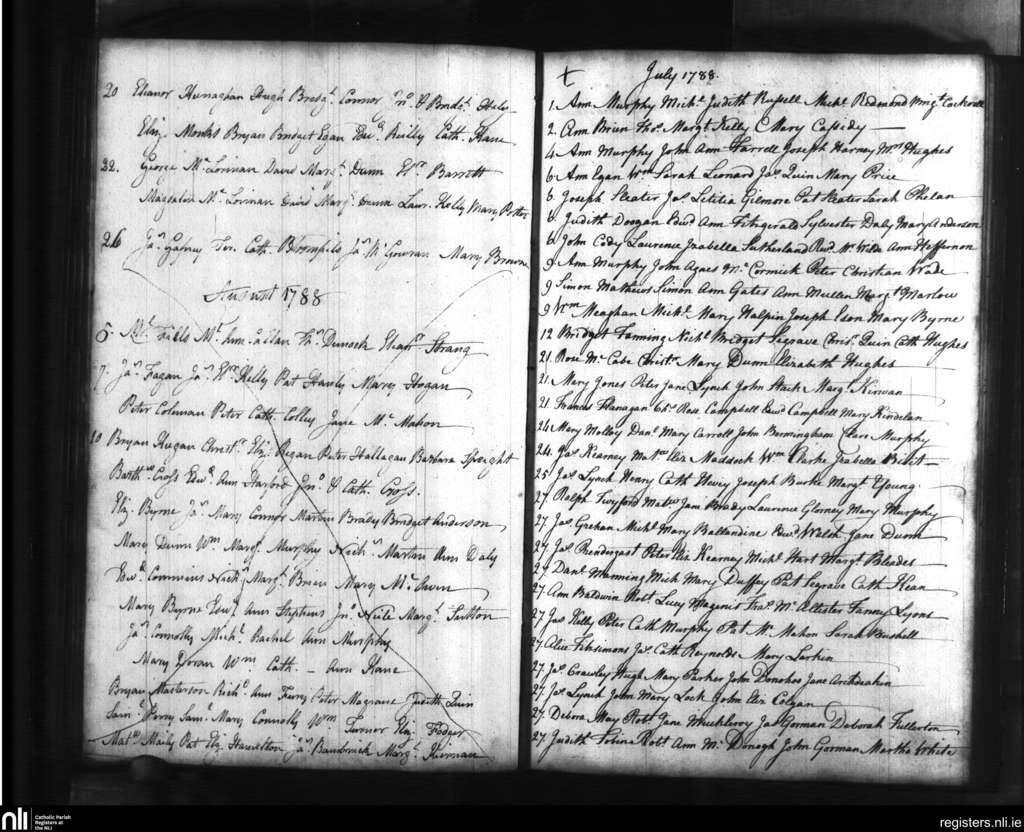 20 Eleanor Hugh Connor
Eliz. Monks Bryan Bridget Egan Edwd. Reilly Cath. Kane
22. George Mc. David Margt. Dunn Wm. Barrett
Magdalen Mc. David Margt. Dunn Laur. Kelly Mary Potter
26 Jas. Gafney Ter. Cath. Jas. Mc. Gowran Mary Browne
August 1788
5. Fields Ths. Strang
7. Jas. Fagan Jas. Kelly Pat Hanly Mary Hogan
Peter Coleman Peter Cath. Jane Mc. Mahon
10 Bryan Hugan Christr. Eliz. Regan Peter Hallagan Barbara Speight
Barthw. Cross Edwd. Ann Harford Jno. & Cath. Cross.
Eliz. Byrne Jas. Mary Connor Martin Brady Bridget Anderson
Mary Dunn Wm. Margt. Murphy Nichs. Martin Ann Daly
Edwd. Commins Nichs. Margt. Brien Mary Mc. Owen
Mary Byrne Edwd. Ann Stephens Jno. Margt.
Jas. Connolly Michl. Rachel Ann Murphy
Mary Doran Wm. Cath. — Ann Kane
Bryan Masterson Richd. Ann Furey Peter Magrane Judith Quin
Saml. Saml. Mary Connolly Wm. Turner Eliz. Fodger
Mattw. Pat Eliz. Hamilton Jas. Margt. Kiernan
+ July 1788.
1. Ann Murphy Michl. Judith Russell Michl. Redmond Mrgt.
2. Ann Brien Thos. Margt. Kelly Mary Cassidy —
4. Ann Murphy John Ann Farrell Joseph Harney Mrs. Hughes
6. Ann Egan Wm. Sarah Leonard Jas. Quin Mary Price
6. Joseph Sleater Jos. Letitia Gilmore Pat Sleater Sarah Phelan
6. Judith Doogan Edwd. Ann Fitzgerald Sylvester Daly Mary Anderson
6. John Cody Laurence Isabella Sutherland Revd. Mr. Wilde Ann Heffernon
9. Ann Murphy John Agnes Mc. Cormick Peter Christian Wade
9 Simon Mathews Simon Ann Gates Ann Mullen Margt. Marlow
9 Wm. Meaghan Michl. Mary Halpin Joseph Eson Mary Byrne
12 Bridget Fanning Nichs. Bridget Segrave Chrisr. Quin Cath Hughes
21. Rose Mc. Cabe Christr. Mary Dunn Elizabeth Hughes
21. Mary Jones Peter Jane Lynch John Stack Margt. Kirwan
21. Francis Flanagan Chrs. Rose Campbell Edwd. Campbell Mary Kindelan
24 Mary Molloy Danl. Mary Carroll John Bermingham Clare Murphy
24. Jas. Kearney Mattw. Eliz Maddock Wm. Clarke Isabella
25. Jas. Lynch Henry Cath Hevey Joseph Burke Margt. Young.
27. Ralph Twyford Mattw. Jane Brady Laurence Glorney Mary Murphy
27. Jas. Geehan Michl. Mary Ballandine Edwd. Walsh Jane Dunn
27. Js. Prendergast Peter Eliz Kearney Michl. Hart Margt. Blondes
27. Danl. Manning Mich Mary Duffey Pat Segrave Cath Kean
27. Ann Baldwin Robt. Lucy Magenis Fras. Mc. Allister Fanny Lyons
27 Jas Kelly Peter Cath Murphy Pat Mc. Mahon Sarah Bushell
27. Alice Fitzsimons Jas. Cath Reynolds Mary Larkin
27. Jas. Crawley Hugh Mary Parker John Donohoe Jane Archdeakin
27. Js. Lynch John Mary Lock John Eliz Colgan
27. Debora May Robt. Jane Muckleroy Jas Gorman Deborah Fullerton
27. Judith Robt. Ann Mc. Donogh John Gorman Martha White
nli Catholic Parish
Registers at
the NLI
registers.nli.ie